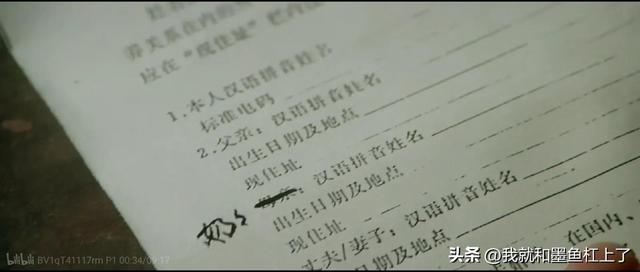 养关系在内的
应在"现住址"栏内
1.本人汉语拼音姓名
标准电码
2.父亲：汉语拼音姓名
出生日期及地点
现住址
奶奶：汉语拼音姓名
出生日期及地点
现住址
丈夫/妻子：汉语拼音姓名
出生日期及地点
在国内、
bilibili BV1qT41117rm P1 00:34/09:17
头条 @我就和墨鱼杠上了